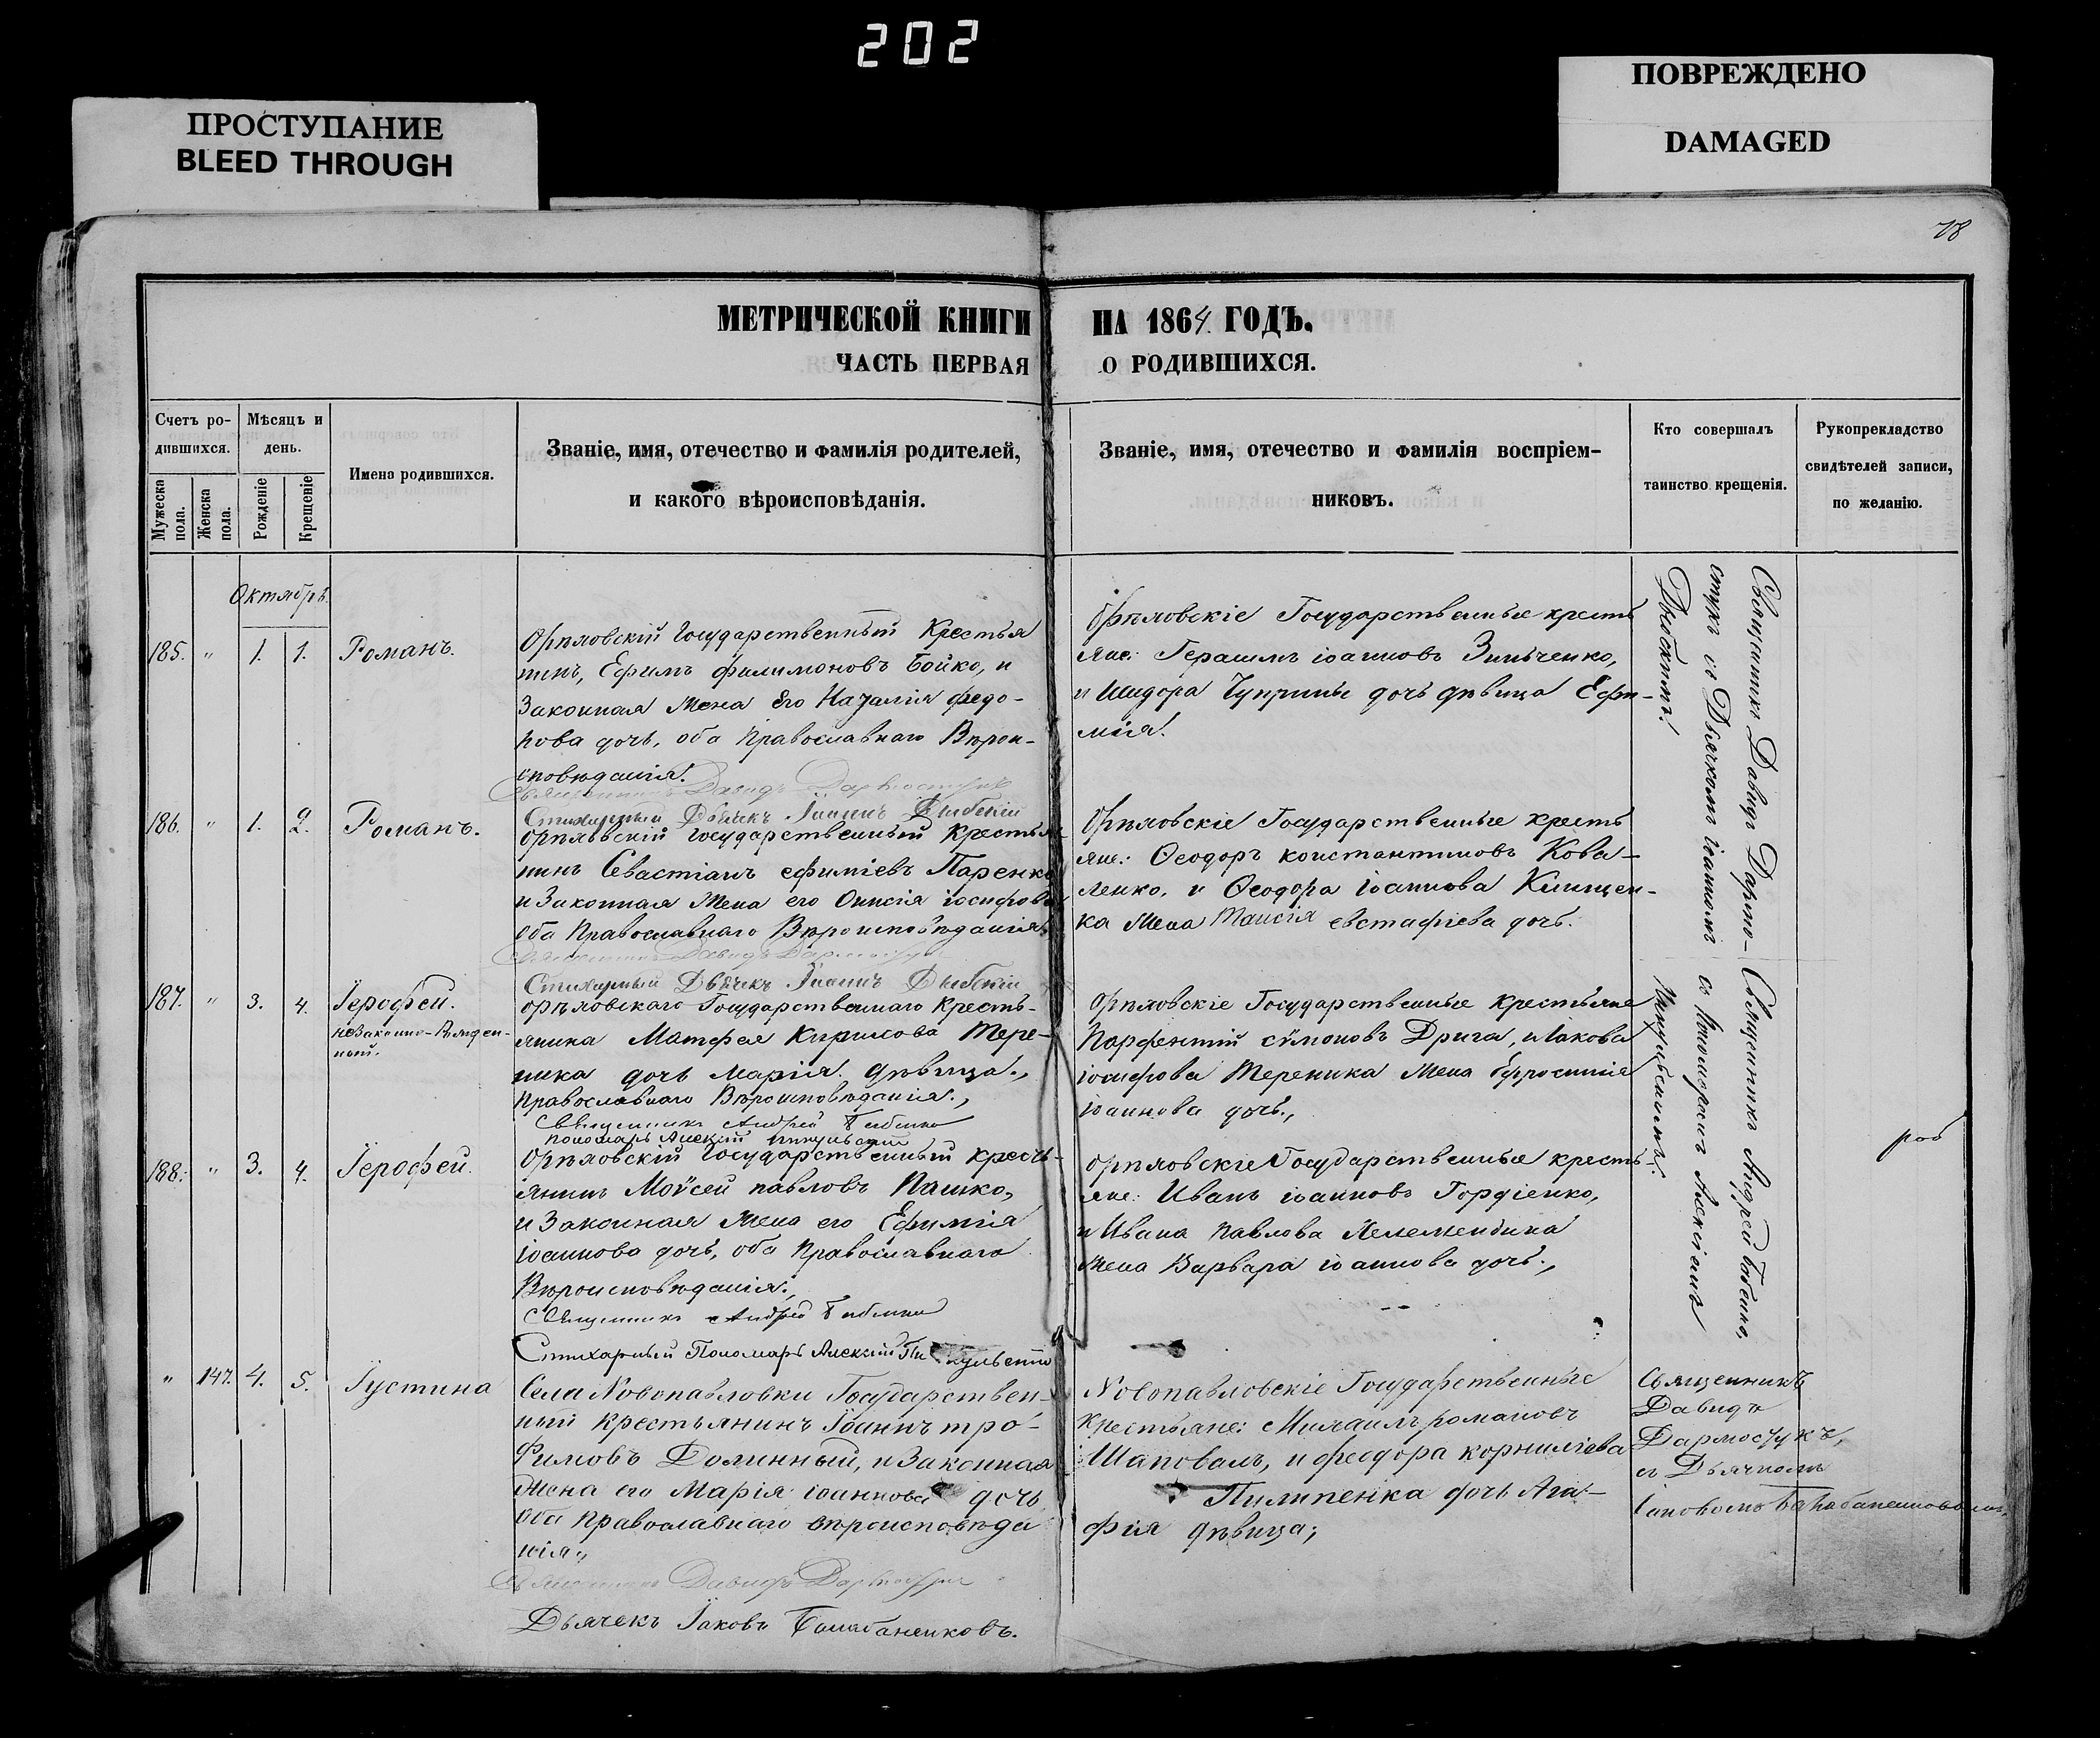 202
ПРОСТУПАНИЕ
BLEED THROUGH
ПОВРЕЖДЕНО
DAMAGED
78
МЕТРИЧЕСКОЙ КНИГИ НА 1864. ГОДЪ.
ЧАСТЬ ПЕРВАЯ О РОДИВШИХСЯ.
Счетъ ро-
дившихся.
Мужеска
пола.
Женска
пола.
Мѣсяцъ и
день.
Рожденіе
Крещеніе
Имена родившихся.
Званіе, имя, отечество и фамилія родителей,
и какого вѣроисповѣданія.
Званіе, имя, отечество и фамилія воспріем-
никовъ.
Кто совершалъ
таинство крещенія.
Рукоприкладство
свидѣтелей записи,
по желанію.
Октябрь
185. " 1. 1. Романъ.
Орѣловскій Государственный Крестья
нинъ, Ефимъ филимоновъ Бойко, и
Законная Жена Его Наталія федо-
рова дочь, оба Православнаго Вѣрои-
сповѣданія.
Священникъ Давидъ
Стихарный Дьячекъ Іоаннъ
Орѣловскіе Государственные кресть
яне: Герасимъ іоанновъ Зинченко,
и Исидора Чуприны дочь дѣвица Ефи-
мія.
Священникъ Давидъ Дармо-
стукъ съ Дьячкомъ іоанномъ
186. " 1. 2. Романъ.
Орѣловскій Государственный Крестья
нинъ Севастіанъ ефиміевъ Паренко
и Законная Жена его Онисія іосифова
оба Православнаго Вѣроисповѣданія.
Священникъ Давидъ
Стихарный Дьячекъ Іоаннъ
Орѣловскіе Государственные кресть
яне: Ѳеодоръ константиновъ Кова-
ленко, и Ѳеодора іоаннова Клищен-
ка Жена Таисія евстафіева дочь.
187. " 3. 4. Іерофей.
незаконно-рожден-
ный.
Орѣловскаго Государственнаго Кресть-
янина Матфея Кирилова Тере-
ника дочь Марія дѣвица.,
Православнаго Вѣроисповѣданія.,
Священникъ Андрей
пономарь Алексій
Орѣловскіе Государственные крестьяне
Парфентій сѵмоновъ Дрига, и Іакова
іосифова Тереника Жена Ефросинія
іоаннова дочь.,
Священникъ Андрей
съ Пономаремъ Алексіемъ
188. " 3. 4. Іерофей.
Орѣловскій Государственный кресть-
янинъ Моѵсей павловъ Пашко,
и Законная Жена его Ефимія
іоаннова дочь, оба Православнаго
Вѣроисповѣданія.,
Священникъ Андрей
Стихарный Пономарь Алексій
Орѣловскіе Государственные кресть-
яне: Иванъ іоанновъ Гордіенко,
и Ивана Павлова
Жена Варвара іоаннова дочь.,
" 147. 4. 5. Іустина
Села Новопавловки Государствен-
ный крестьянинъ Іоаннъ тро-
фимовъ Долинный, и Законная
Жена его Марія іоаннова дочь
Оба Православнаго вѣроисповѣда
нія.,
Священникъ Давидъ
Дьячекъ Іаковъ Балабаненковъ.
Новопавловскіе Государственные
крестьяне: Михаилъ романовъ
Шаповалъ, и феодора корниліева
Пилипенка дочь Ага-
фія дѣвица;
Священникъ
Давидъ
Дармостукъ,
съ Дьячкомъ
Іаковомъ Балабаненковымъ.